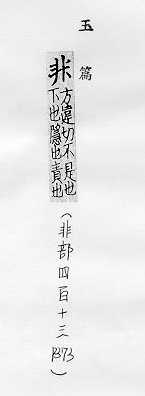 玉篇
非 方違切不是也
下也隱也責也
(非部四百十三 P373)